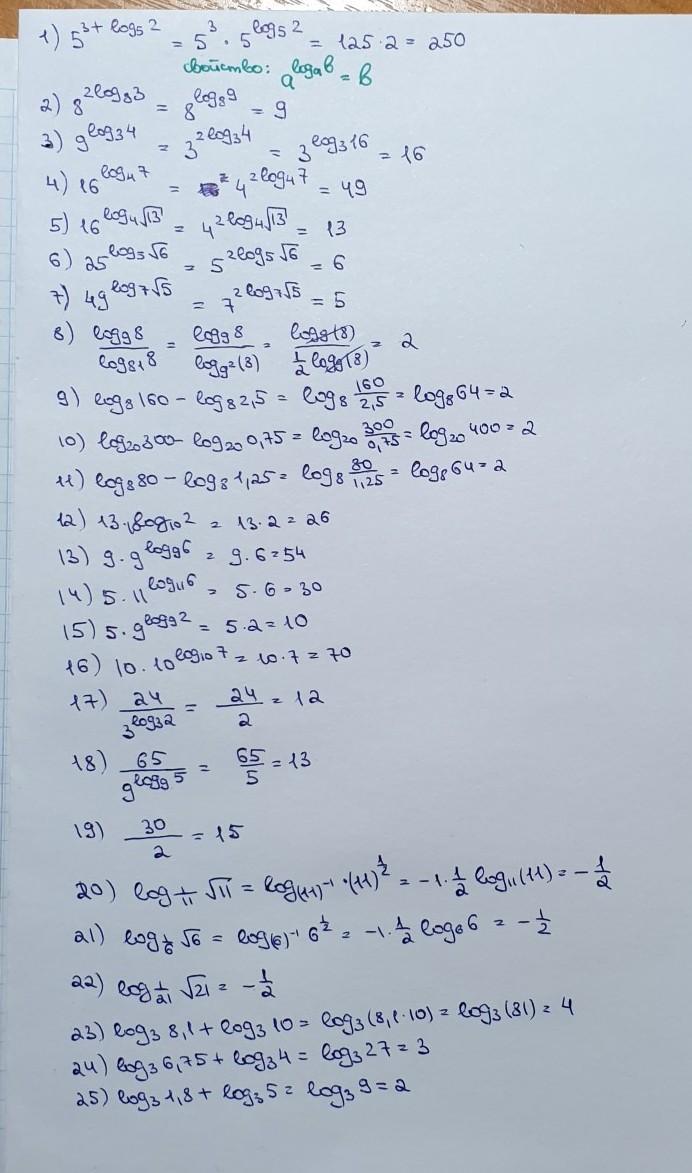 1) 5^{3+log₅2} = 5³ · 5^{log₅2} = 125·2 = 250
свойство: a^{logₐb} = b
2) 8^{2log₈3} = 8^{log₈9} = 9
3) 9^{log₃4} = 3^{2log₃4} = 3^{log₃16} = 16
4) 16^{log₄7} = 4^{2log₄7} = 49
5) 16^{log₄√13} = 4^{2log₄√13} = 13
6) 25^{log₅√6} = 5^{2log₅√6} = 6
7) 49^{log₇√5} = 7^{2log₇√5} = 5
8) log₉8 / log₈₁8 = log₉8 / log_{9²}(8) = log₉(8) / ½ log₉(8) = 2
9) log₈160 - log₈2,5 = log₈ 160/2,5 = log₈64 = 2
10) log₂₀300 - log₂₀0,75 = log₂₀ 300/0,75 = log₂₀400 = 2
11) log₈80 - log₈1,25 = log₈ 80/1,25 = log₈64 = 2
12) 13·log₁₀2 = 13·2 = 26
13) 9·9^{log₉6} = 9·6 = 54
14) 5·11^{log₁₁6} = 5·6 = 30
15) 5·9^{log₉2} = 5·2 = 10
16) 10·10^{log₁₀7} = 10·7 = 70
17) 24 / 3^{log₃2} = 24/2 = 12
18) 65 / 9^{log₉5} = 65/5 = 13
19) 30/2 = 15
20) log_{1/11} √11 = log_{(11)⁻¹} · (11)^{1/2} = -1·½ log₁₁(11) = -½
21) log_{1/6} √6 = log_{(6)⁻¹} 6^{1/2} = -1·½ log₆6 = -½
22) log_{1/21} √21 = -½
23) log₃8,1 + log₃10 = log₃(8,1·10) = log₃(81) = 4
24) log₃6,75 + log₃4 = log₃27 = 3
25) log₃1,8 + log₃5 = log₃9 = 2